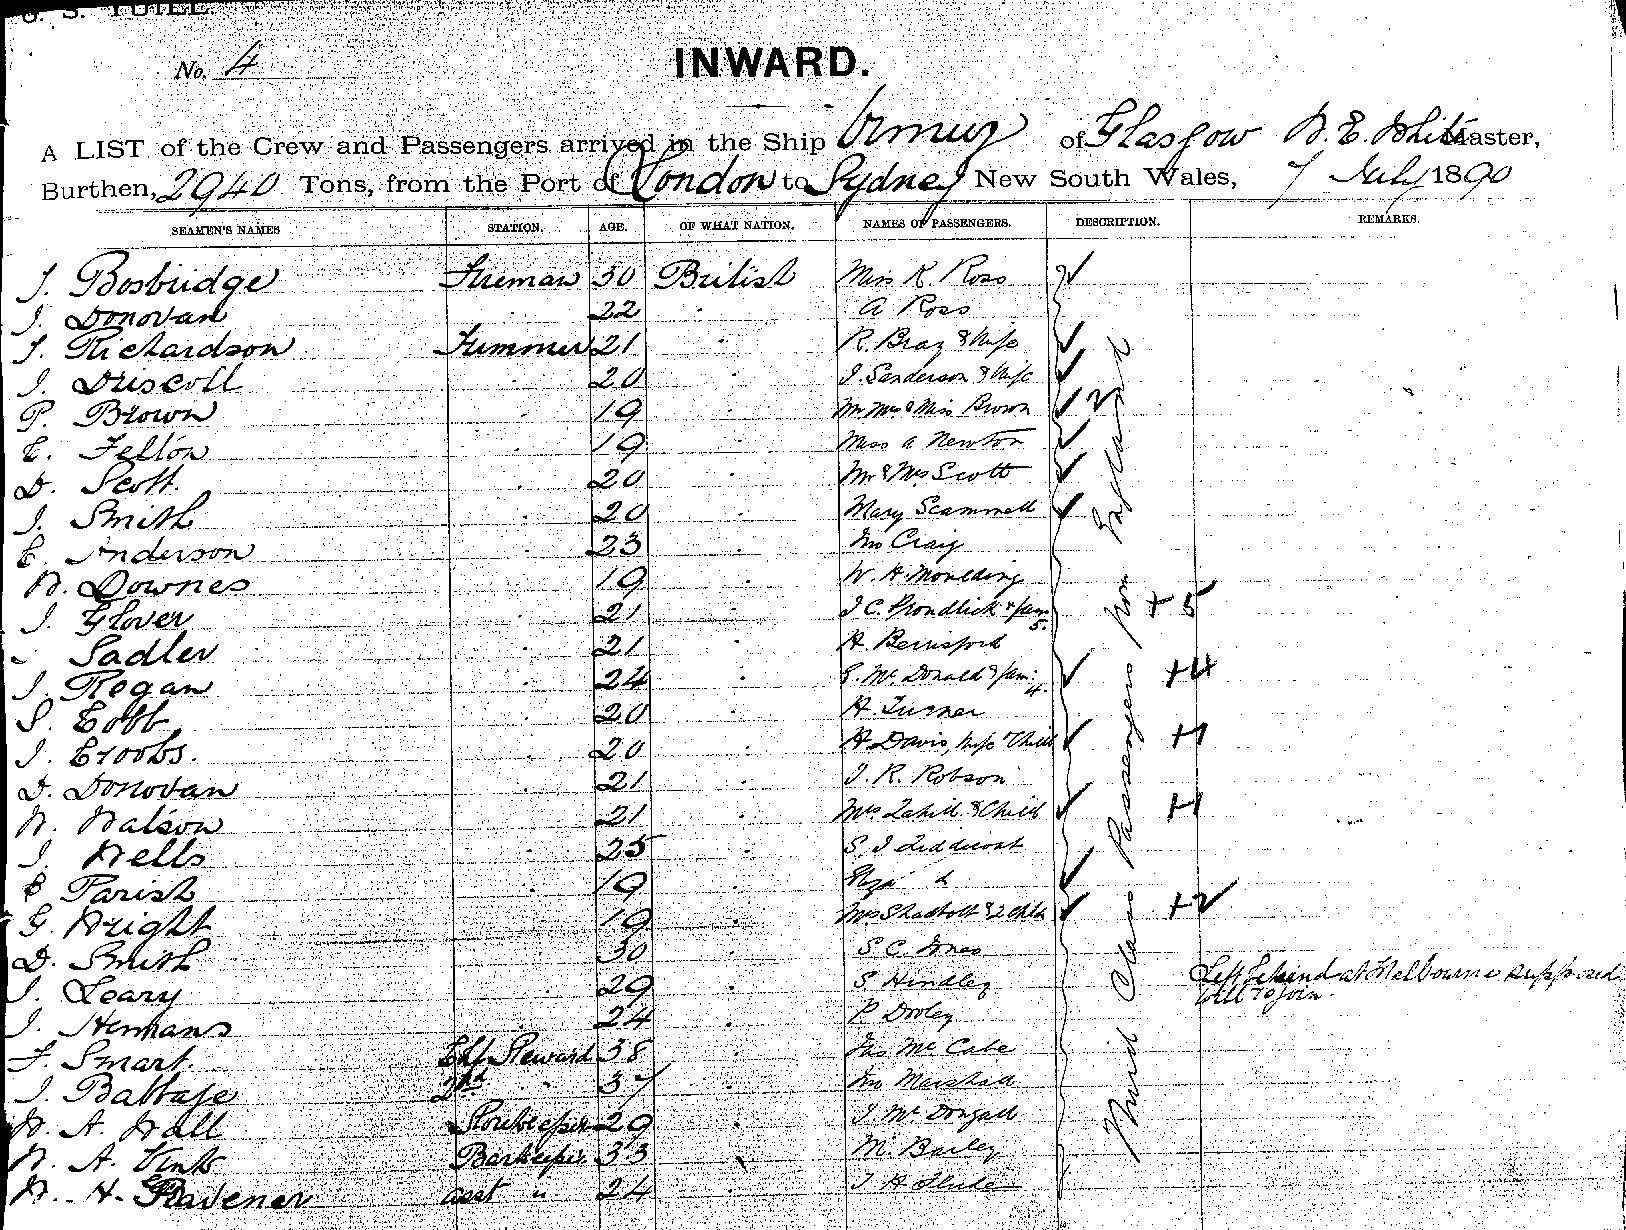 No. 4
INWARD.
A LIST of the Crew and Passengers arrived in the Ship Ormuz of Glasgow Master,
Burthen, 2940 Tons, from the Port of London to Sydney New South Wales, 7 July 1890
SEAMEN'S NAMES STATION. AGE. OF WHAT NATION. NAMES OF PASSENGERS. DESCRIPTION. REMARKS.
J. Bosbridge Fireman 30 British Miss K. Ross
J. Donovan 22 A Ross
J. Richardson Trimmer 21 R. Bray & Wife
J. Driscoll 20 J. Sanderson & Wife
P. Brown 19 Mr Mrs & Miss Brown 2
E. Felton 19 Miss A Newton
D. Scott. 20 Mr & Mrs Scott
J. Smith 20 Mary Scammell
E. Anderson 23 Craig
W. Downes 19 W. H. Moulding
J. Glover 21 J C. & fam 5. + 5
Sadler 21 H. Berrisford
J. Rogan 24 Mc Donald & fam: 4. +4
S. Cobb 20 H. Turner
J. Croobs. 20 H Davis, Wife & Child +1
D. Donovan 21 J. R. Robson
W. Watson 21 Mrs & Child +1
J. Wells 25 S. J
Parish 19 Eliza
G. Wright 19 Mrs Shadbolt & 2 Chld +2
D. Smith 30 S C. Jones
J. Leary 29 S Hindley Left behind at Melbourne supposed
to join.
J. Hemans 24 P Dooley
F. Smart. Chf Steward 38 Jas Mc Cabe
J. Battage 2nd 37 Marshall
W. A. Wall Storekeeper 29 J Mc Dougall
W. A. Barkeeper 33 M. Bailey
W. H. Ravener asst " 24 J H
Third Class Passengers from England